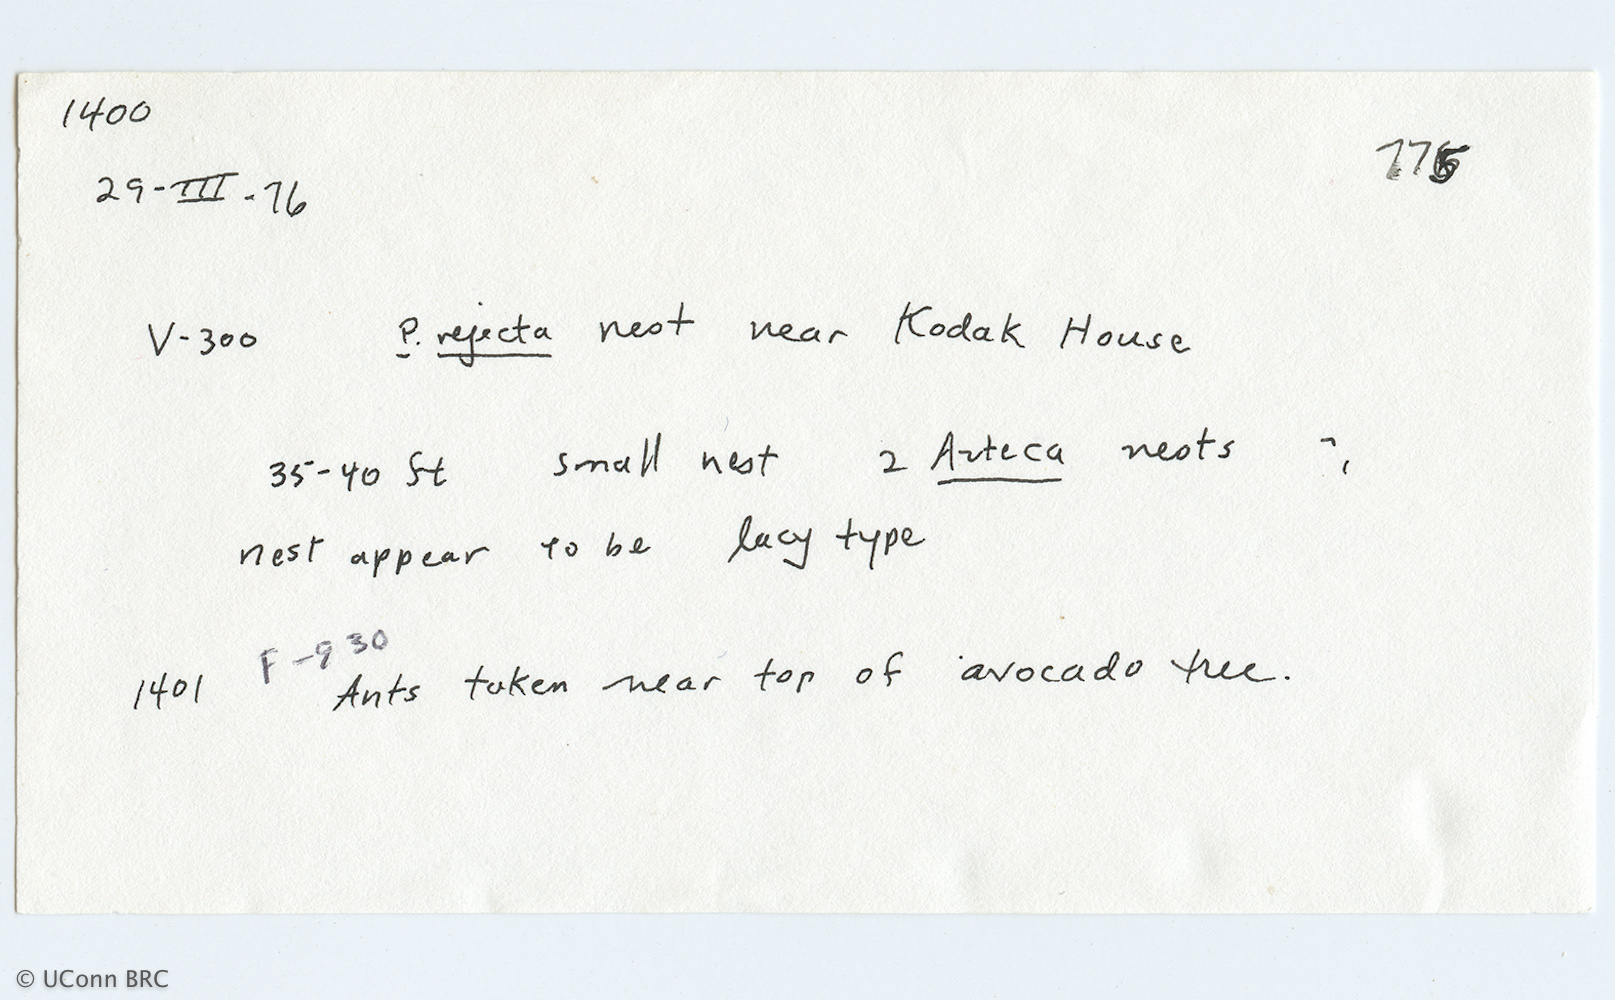 1400
775
29-III-76
V-300 P. rejecta nest near Kodak House
35-40 ft small nest 2 Azteca nests ?
nest appear to be lacy type
F-930
1401 Ants taken near top of avocado tree.
© UConn BRC